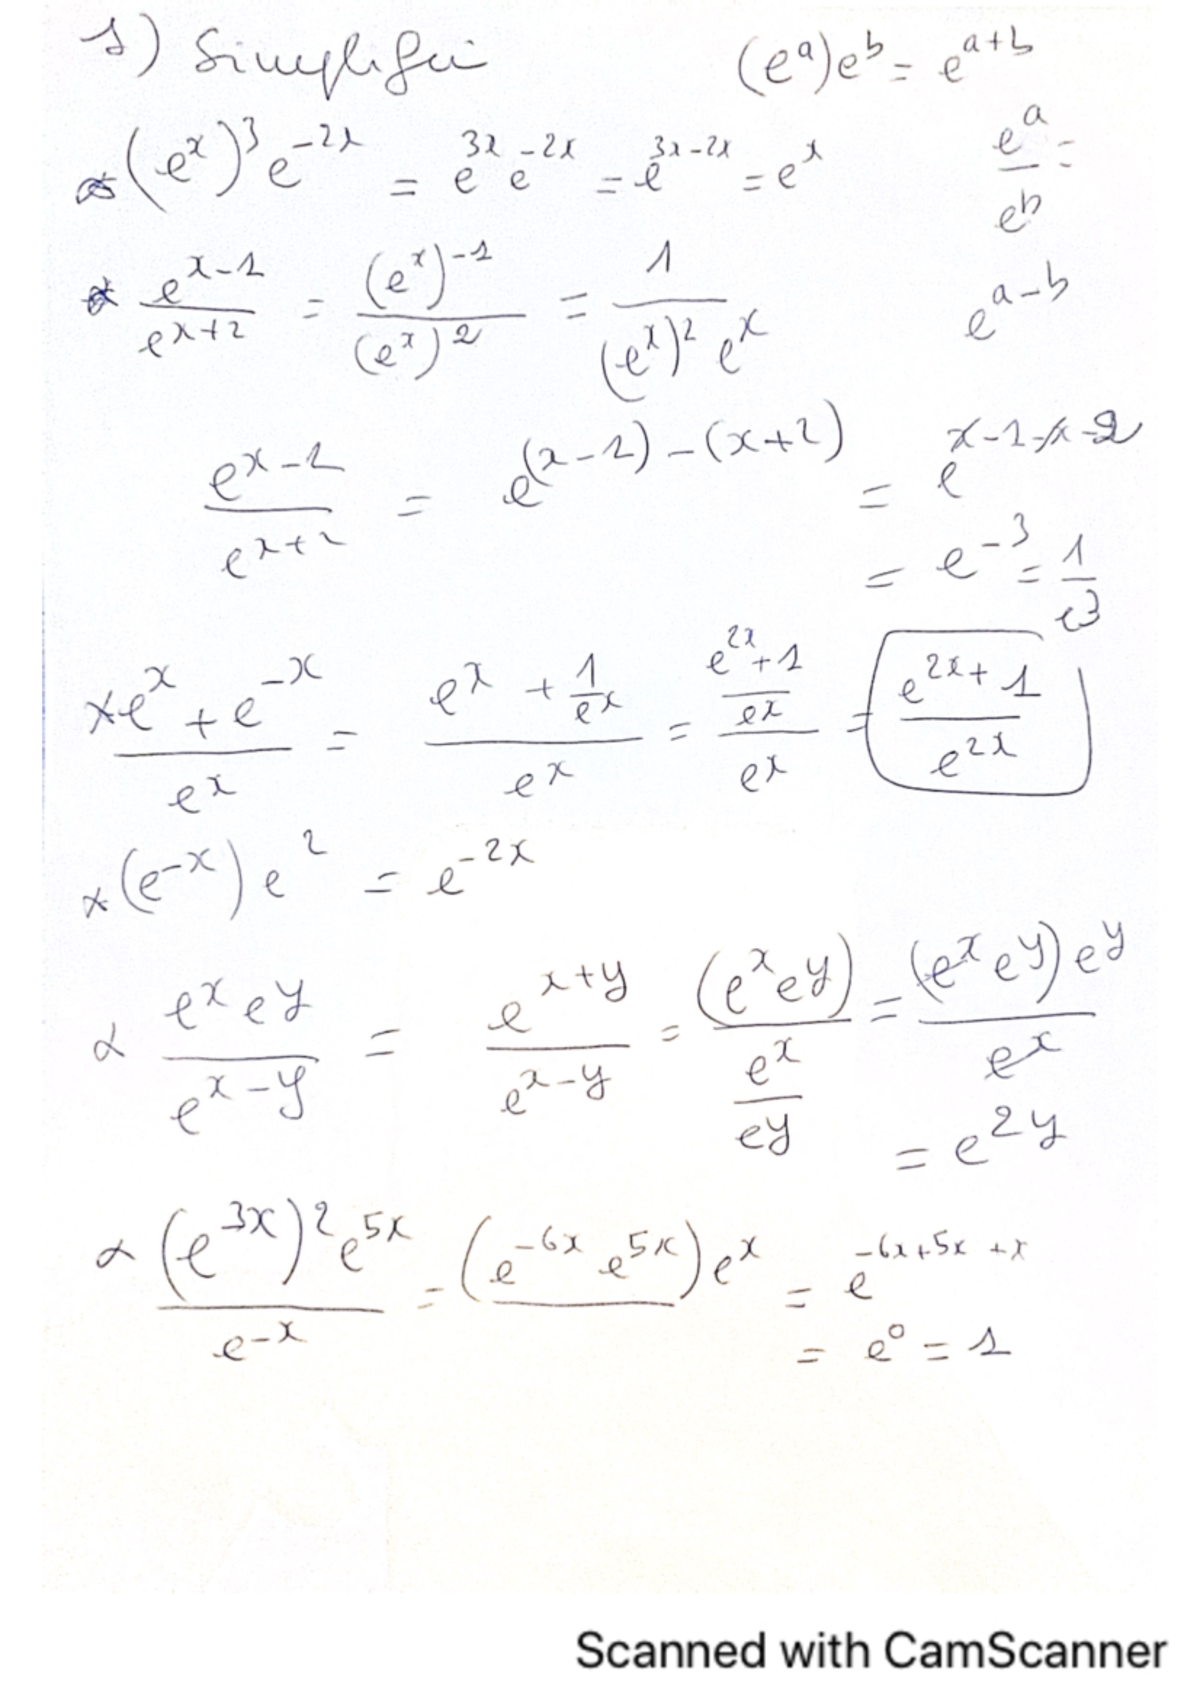 1) Simplifier (e^a)e^b = e^{a+b}
(e^x)^3 e^{-2x} = e^{3x} e^{-2x} = e^{3x-2x} = e^x
e^a / e^b =
e^{x-1} / e^{x+2} = (e^x)^{-1} / (e^x)^2 = 1 / ((e^x)^2 e^x)
e^{a-b}
e^{x-1} / e^{x+2} = e^{(x-1)-(x+2)} = e^{x-1-x-2}
= e^{-3} = 1 / e^3
× (e^x + e^{-x}) / e^x = (e^x + 1/e^x) / e^x = ((e^{2x}+1) / e^x) / e^x = (e^{2x}+1) / e^{2x}
× (e^{-x}) e^2 = e^{-2x}
× e^x e^y / e^{x-y} = e^{x+y} / e^{x-y} = (e^x e^y) / (e^x / e^y) = (e^x e^y) e^y / e^x
= e^{2y}
× (e^{3x})^2 e^{5x} / e^{-x} = (e^{-6x} e^{5x}) e^x = e^{-6x+5x+x}
= e^0 = 1
Scanned with CamScanner